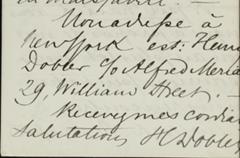 Mon adresse à
New York est: Henri
Dobler c/o Alfred Meria
29, William Street. –
Recevez mes cordia
salutations H Dobler